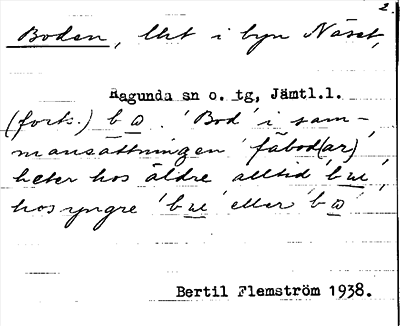 2.
Boden, litet i byn Näset,
Ragunda sn o. tg, Jämtl.l.
(forts.) b ω . 'Bod' i sam-
mansättningen 'fäbod(ar)'
heter hos äldre alltid 'b u',
hos yngre 'b u' eller 'b ω'
Bertil Flemström 1938.